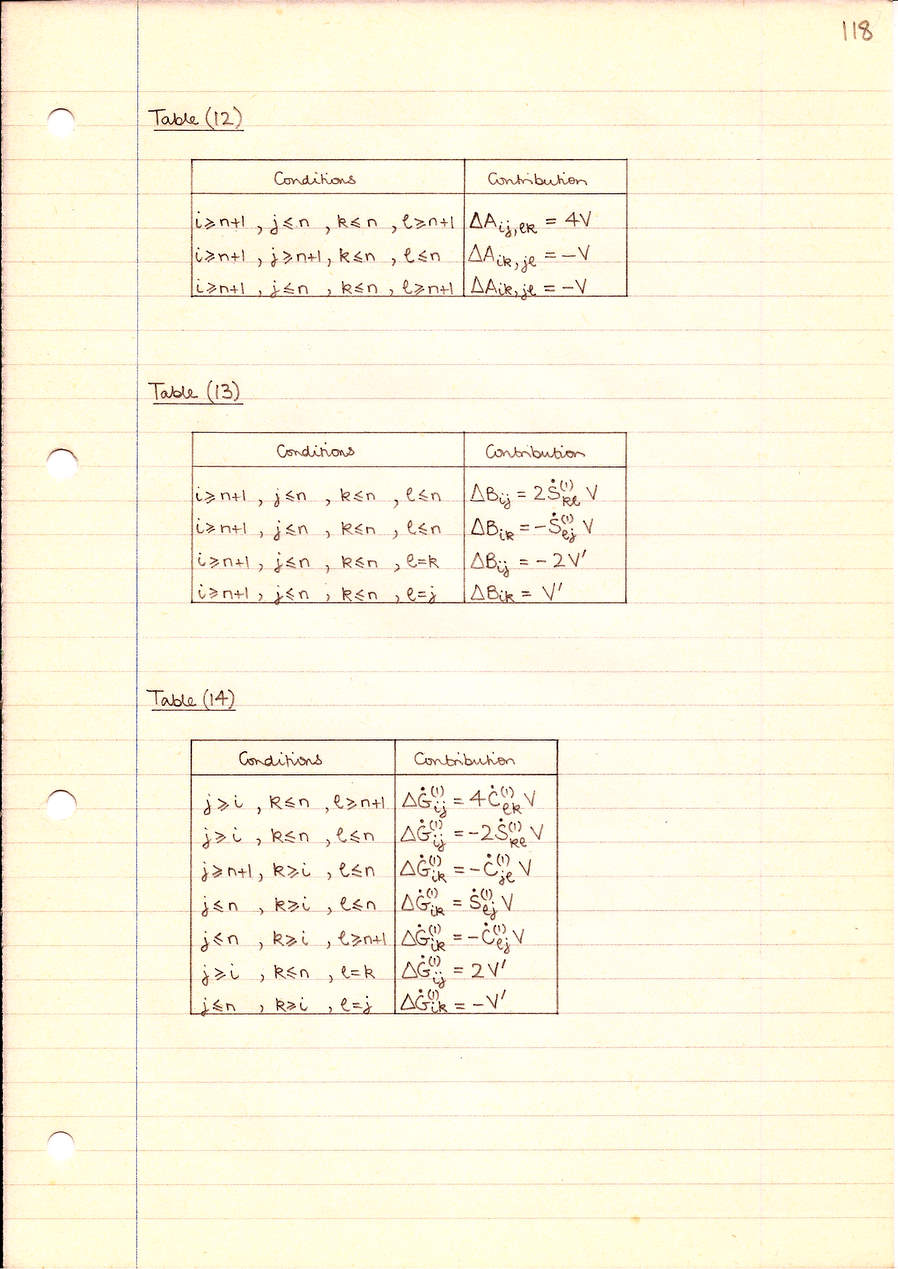 118
Table (12)
Conditions Contribution
i⩾n+1 , j≤n , k≤n , ℓ⩾n+1 ΔA_{ij,ℓk} = 4V
i⩾n+1 , j⩾n+1, k≤n , ℓ≤n ΔA_{ik,jℓ} = -V
i⩾n+1 , j≤n , k≤n , ℓ⩾n+1 ΔA_{ik,jℓ} = -V
Table (13)
Conditions Contribution
i⩾n+1 , j≤n , k≤n , ℓ≤n ΔB_{ij} = 2Ṡ^{(1)}_{kℓ} V
i⩾n+1 , j≤n , k≤n , ℓ≤n ΔB_{ik} = -Ṡ^{(1)}_{ℓj} V
i⩾n+1 , j≤n , k≤n , ℓ=k ΔB_{ij} = -2V'
i⩾n+1 , j≤n , k≤n , ℓ=j ΔB_{ik} = V'
Table (14)
Conditions Contribution
j⩾i , k≤n , ℓ⩾n+1 ΔĠ^{(1)}_{ij} = 4Ċ^{(1)}_{ℓk} V
j⩾i , k≤n , ℓ≤n ΔĠ^{(1)}_{ij} = -2Ṡ^{(1)}_{kℓ} V
j⩾n+1, k⩾i , ℓ≤n ΔĠ^{(1)}_{ik} = -Ċ^{(1)}_{jℓ} V
j≤n , k⩾i , ℓ≤n ΔĠ^{(1)}_{ik} = Ṡ^{(1)}_{ℓj} V
j≤n , k⩾i , ℓ⩾n+1 ΔĠ^{(1)}_{ik} = -Ċ^{(1)}_{ℓj} V
j⩾i , k≤n , ℓ=k ΔĠ^{(1)}_{ij} = 2V'
j≤n , k⩾i , ℓ=j ΔĠ^{(1)}_{ik} = -V'